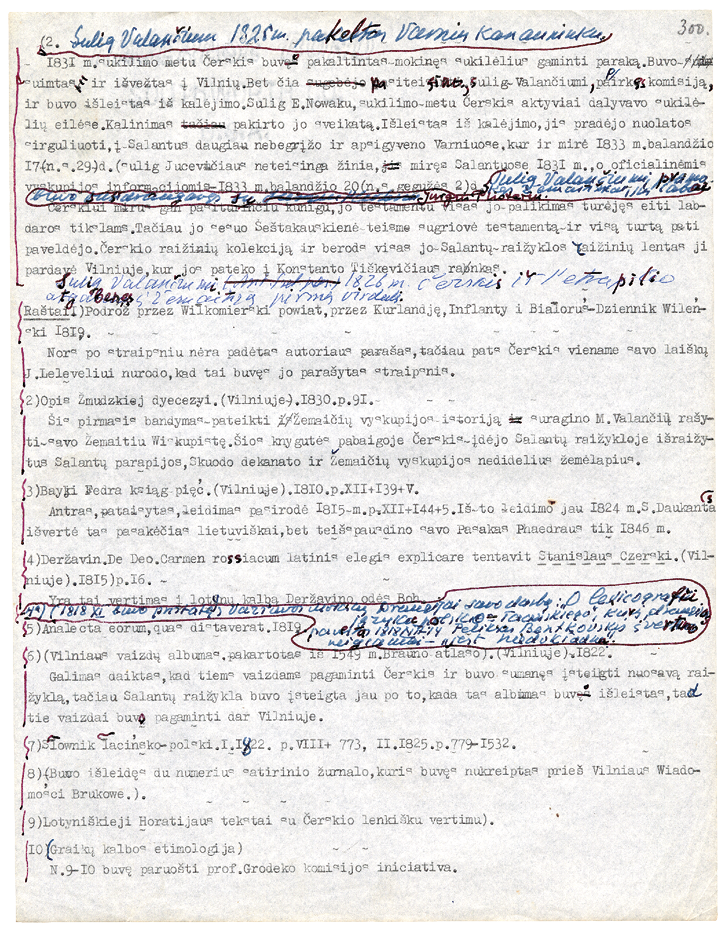 300.
(2. Sulig Valančium 1825 m. pakeltas Varnių Kanauninku.
I83I m.sukilimo metu Čerskis buvęs pakaltintas mokinęs sukilėlius gaminti paraką.Buvo
suimtas ir išvežtas į Vilnių.Bet čia sugebėjo pasiteisinęs Sulig Valančiumi, komisiją,
ir buvo išleistas iš kalėjimo.Sulig E.Nowaku,sukilimo-metu Čerskis aktyviai dalyvavo sukilė-
lių eilėse.Kalinimas tačiau pakirto jo sveikatą.Išleistas iš kalėjimo,jis pradėjo nuolatos
sirguliuoti,į Salantus daugiau nebegrįžo ir apsigyveno Varniuose,kur ir mirė I833 m.balandžio
I7(n.s.29)d.(sulig Jucevičiaus neteisinga žinia, miręs Salantuose I83I m.,o oficialinėmis
vyskupijos informacijomis-I833 m.balandžio 20(n.s.gegužės 2)d.
Sulig Valančiumi
buvo susirangavęs su
Čerskiui mirus gan pasiturinčiu kunigu,jo testamentu visas jo-palikimas turėjęs eiti lab-
daros tikslams.Tačiau jo sesuo Šeštakauskienė-teisme sugriovė testamentą-ir visą turtą pati
paveldėjo.Čerskio raižinių kolekciją ir berods visas jo-Salantų-raižyklos raižinių lentas ji
pardavė Vilniuje,kur jos pateko į Konstanto Tiškevičiaus rankas.
Sulig Valančiumi 1826 m. Čerskis iš Petrapilio
atgabenęs Žemaitiją pirmą virdulį.
Raštai I)Podróż przez Wilkomierski powiat,przez Kurlandję,Inflanty i Białoruś-Dziennik Wileń-
ski I8I9.
Nors po straipsniu nėra padėtas autoriaus parašas,tačiau pats Čerskis viename savo laiškų
J.Leleveliui nurodo,kad tai buvęs jo parašytas straipsnis.
2)Opis Żmudzkiej dyecezyi.(Vilniuje).I830.p.9I.
Šis pirmasis bandymas-pateikti Žemaičių vyskupijos-istoriją suragino M.Valančių rašy-
ti-savo Žemaitiu Wiskupistę.Šios knygutės pabaigoje Čerskis-įdėjo Salantų raižykloje išraižy-
tus Salantų parapijos,Skuodo dekanato ir Žemaičių vyskupijos nedidelius žemėlapius.
3)Bayki Fedra ksiąg-pięć.(Vilniuje).I8I0.p.XII+I39+V.
Antras,pataisytas,leidimas pasirodė I8I5-m.p.XII+I44+5.Iš-to leidimo jau I824 m.S.Daukantas
išvertė tas pasakėčias lietuviškai,bet teišspausdino savo Pasakas Phaedraus tik I846 m.
4)Deržavin.De Deo.Carmen rossiacum latinis elegis explicare tentavit Stanislaus Czerski.(Vil-
niuje).I8I5)p.I6.
Yra tai vertimas į lotynų kalbą Deržavino odės Boh.
4a) (1818 XI buvo pristatęs Varšuvos mokslų Draugijai savo darbą "O leksicografii
języka polsko-łacińskiego"
5)Analecta eorum,quas dictaverat.I8I9
6)(Vilniaus vaizdų albumas,pakartotas iš I549 m.Brauno atlaso).(Vilniuje).I822.
Galimas daiktas,kad tiems vaizdams pagaminti Čerskis ir buvo sumanęs įsteigti nuosavą rai-
žyklą,tačiau Salantų raižykla buvo įsteigta jau po to,kada tas albumas buvęs išleistas,tad
tie vaizdai buvo pagaminti dar Vilniuje.
7)Słownik łacińsko-polski.I.I822. p.VIII+ 773, II.I825.p.779-I532.
8)(Buvo išleidęs du numerius satirinio žurnalo,kuris buvęs nukreiptas prieš Vilniaus Wiado-
mości Brukowe.).
9)Lotyniškieji Horatijaus tekstai su Čerskio lenkišku vertimu).
I0(Graikų kalbos etimologija)
N.9-I0 buvę paruošti prof.Grodeko komisijos iniciativa.